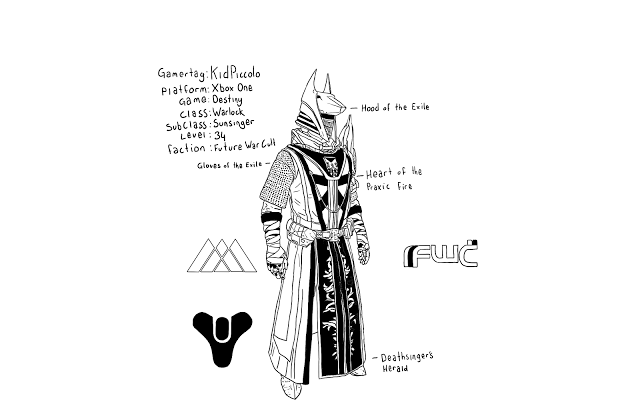 Gamertag: KidPiccolo
Platform: Xbox One
Game: Destiny
Class: Warlock
Subclass: Sunsinger
Level: 34
Faction: Future War Cult
Hood of the Exile
Gloves of the Exile
Heart of the
Praxic Fire
FWC
Deathsinger's
Herald